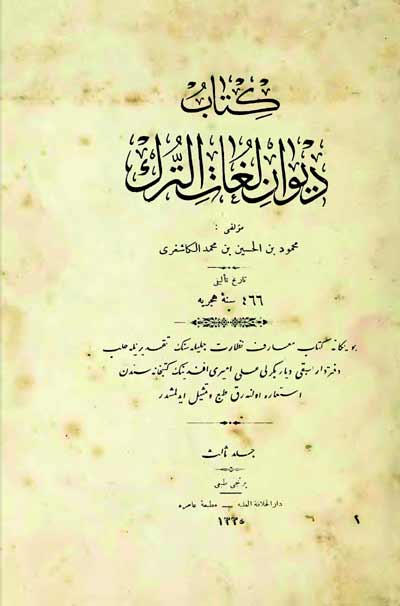 كتاب
ديوان لغات الترك
مؤلفى :
محمود بن الحسين بن محمد الكاشغرى
تاريخ تأليفى
٤٦٦ سنۀ هجريه
بو يگانه كتاب معارف نظارت جليله سنك تقديريله حلب
دفتردار سبقى ديار بكرلى على اميرى افندينك كتبخانه سندن
استعاره اولنه رق طبع و تمثيل ايدلمشدر
جلد ثالث
برنجى طبعى
دار الخلافة العليه — مطبعۀ عامره
١٣٣٥
٢